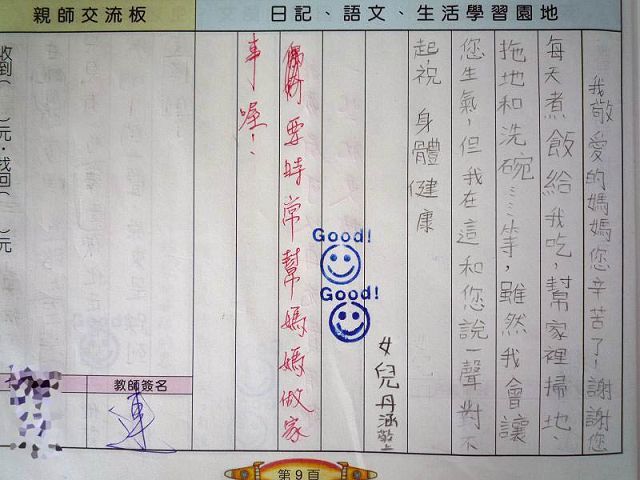 日記、語文、生活學習園地
我敬愛的媽媽您辛苦了!謝謝您
每天煮飯給我吃,幫家裡掃地、
拖地和洗碗……等,雖然我會讓
您生氣,但我在這和您說一聲對不
起祝 身體健康
女兒丹涵敬上
Good!
Good!
要時常幫媽媽做家
事喔!
親師交流板
收到( )元,找回( )元
教師簽名
第9頁